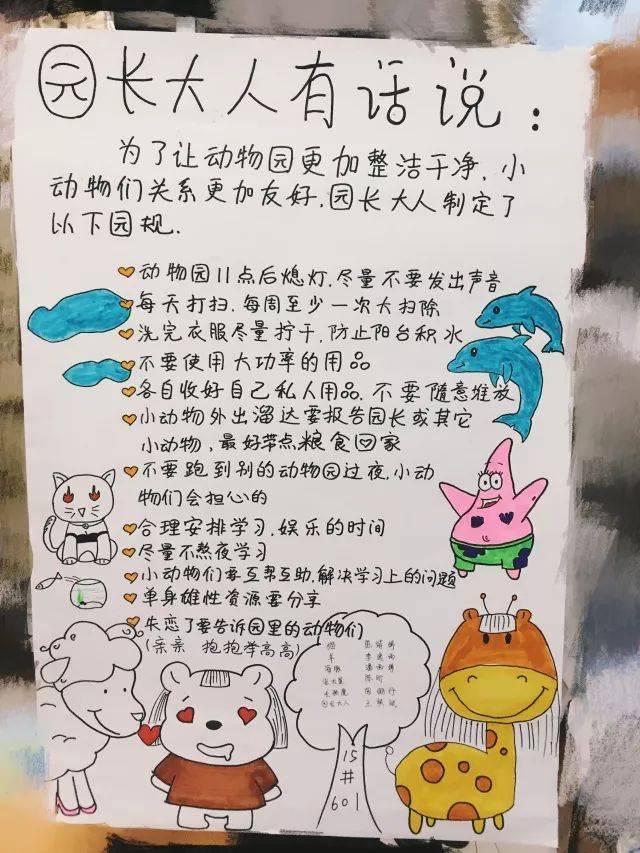 园长大人有话说：
为了让动物园更加整洁干净，小
动物们关系更加友好，园长大人制定了
以下园规．
动物园11点后熄灯，尽量不要发出声音
每天打扫，每周至少一次大扫除
洗完衣服尽量拧干，防止阳台积水
不要使用大功率的用品
各自收好自己私人用品，不要随意堆放
小动物外出溜达要报告园长或其它
小动物，最好带点粮食回家
不要跑到别的动物园过夜，小动
物们会担心的
合理安排学习，娱乐的时间
尽量不熬夜学习
小动物们要互帮互助，解决学习上的问题
单身雄性资源要分享
失恋了要告诉园里的动物们
(亲亲 抱抱举高高)
猫
羊
海豚
园长大人 王
15
#
601